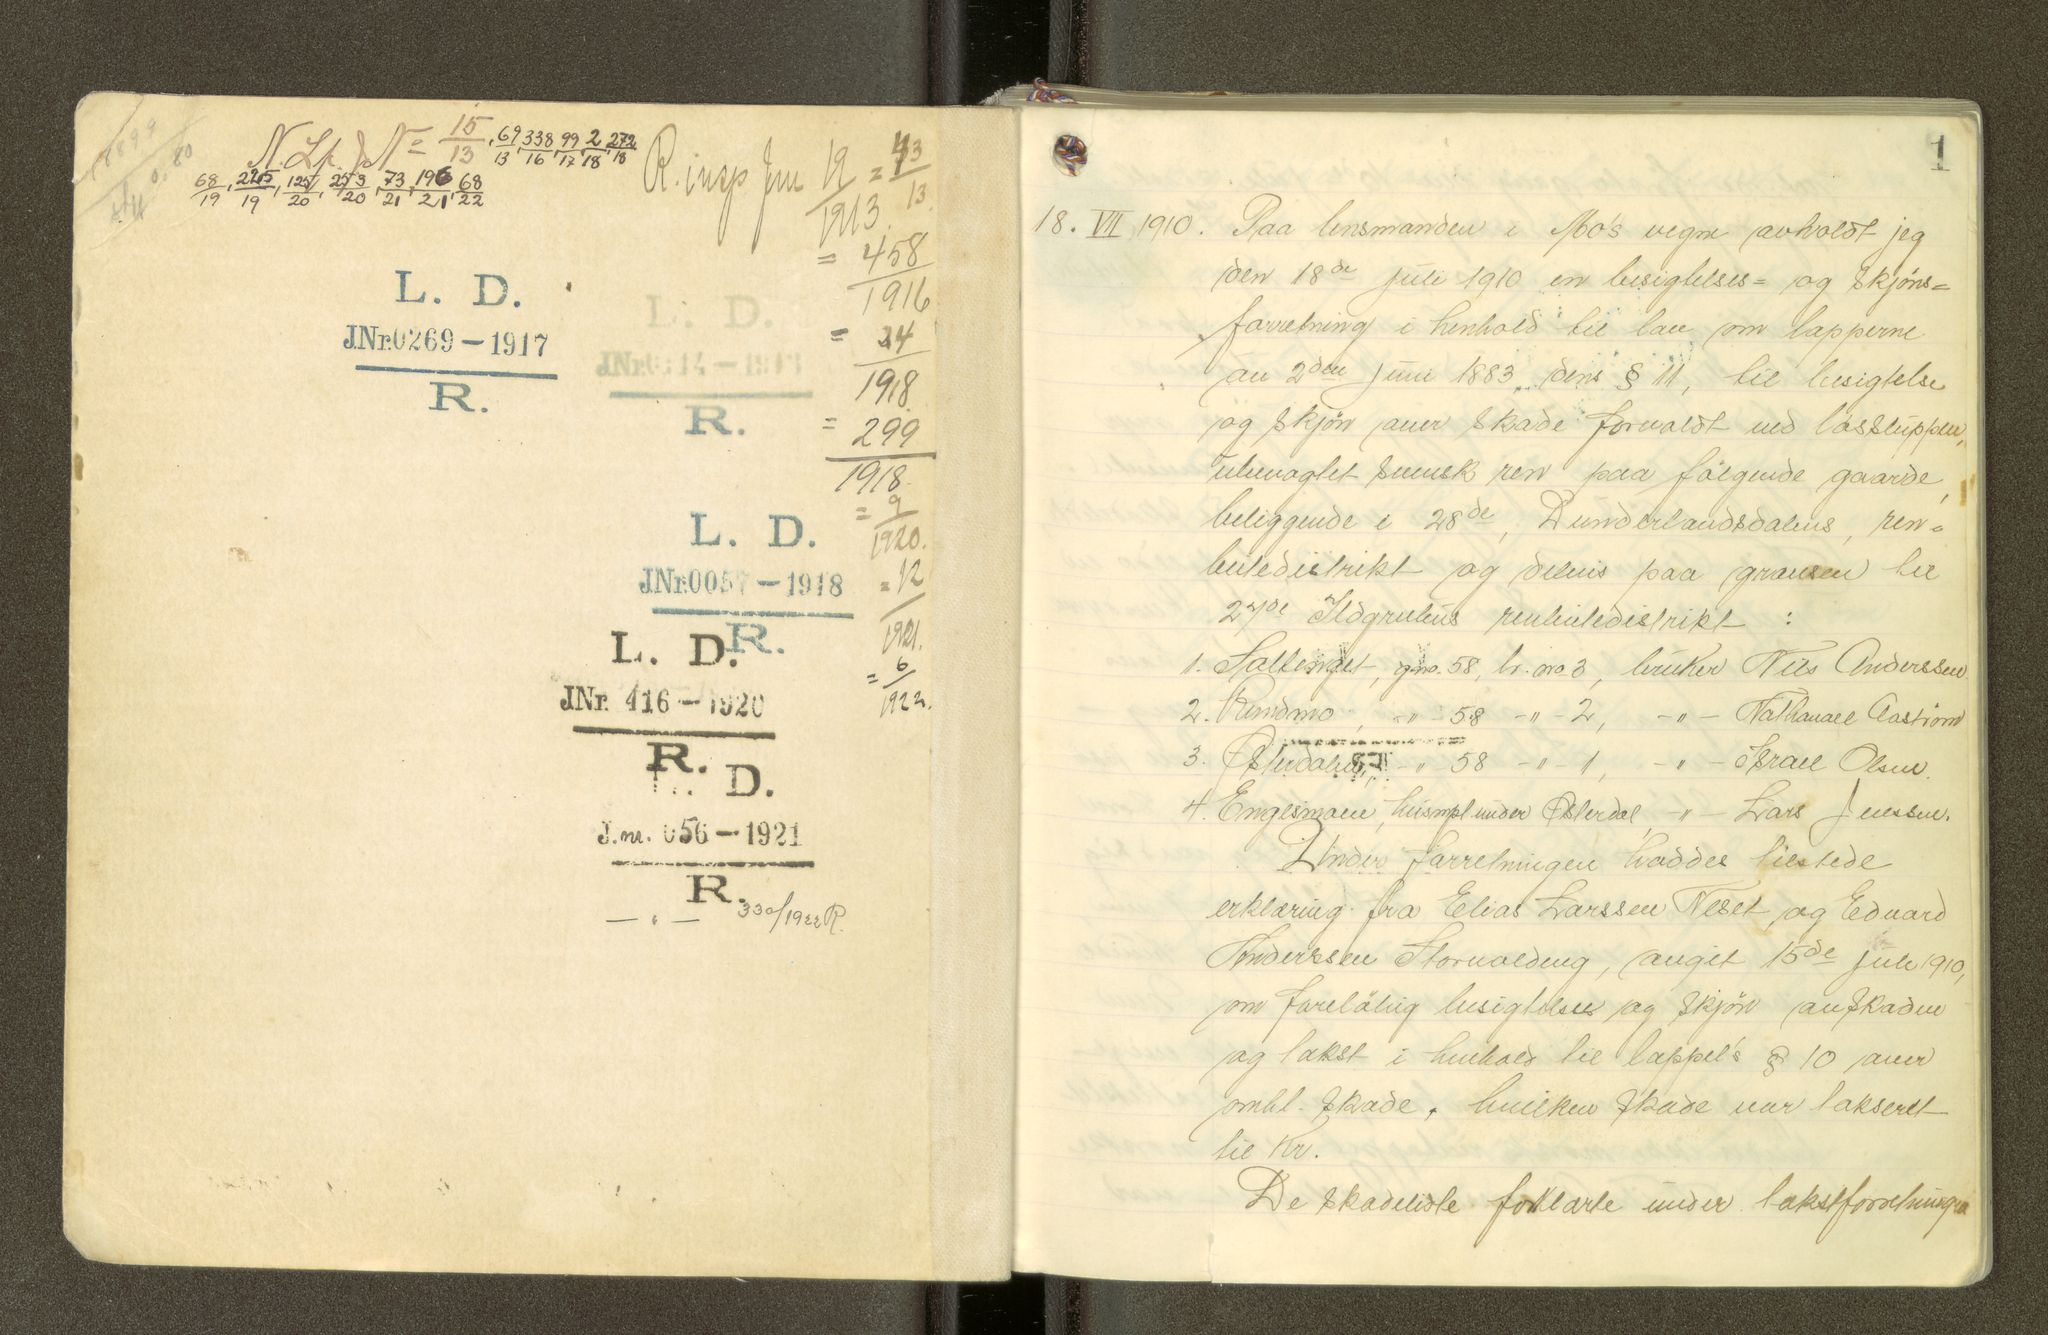 N. Lp. J N = 15/13, 69/13, 338/16, 99/17, 2/18, 272/18
68/19, 225/19, 125/20, 253/20, 73/21, 196/21, 68/22
R. insp Jnr 19/1913 = 43/13.
= 458/1916
= 34/1918
= 299/1918
= 9/1920.
= 12/1921.
= 6/1922.
L. D.
JNr.0269-1917
R.
L. D.
R.
L. D.
JNr.0057-1918
R.
L. D.
JNr. 416-1920
R.
D.
J.nr. 056-1921
R.
— " — 330/1922 R.
1
18. VII 1910. Paa lensmanden i Mo's vegne avholdt jeg
den 18de juli 1910 en besigtelses= og skjöns=
forretning i henhold til lov om lapperne
av 2den juni 1883 dens § 11, til besigtelse
og skjön over skade forvoldt ved lössluppen,
ubevogtet svensk ren paa fölgende gaarde,
beliggende i 28de, Dunderlandsdalens, ren=
beitedistrikt og delvis paa grænsen til
27de Ildgrubens renbeitedistrikt :
1. , gno. 58, br. no 3, bruker Nils Anderssen
2. Randmo, -"- 58 -"- 2, -"- Nathanael Aaström
3. Østerdalen, -"- 58 -"- 1, -"- Israel Olsen.
4. Engesmoen, husmpl under Østerdal, -"- Lars Jenssen.
Under forretningen hadde tilstede
erklæring fra Elias Larssen Neset og Edvard
Anderssen Storvoldeng, avgit 15de juli 1910,
om forelöbig besigtelse og skjön av skaden
og takst i henhold til lappel's § 10 over
omhl. skade, hvilken skade var takseret
til Kr.
De skadelidte forklarte under takstforretningen